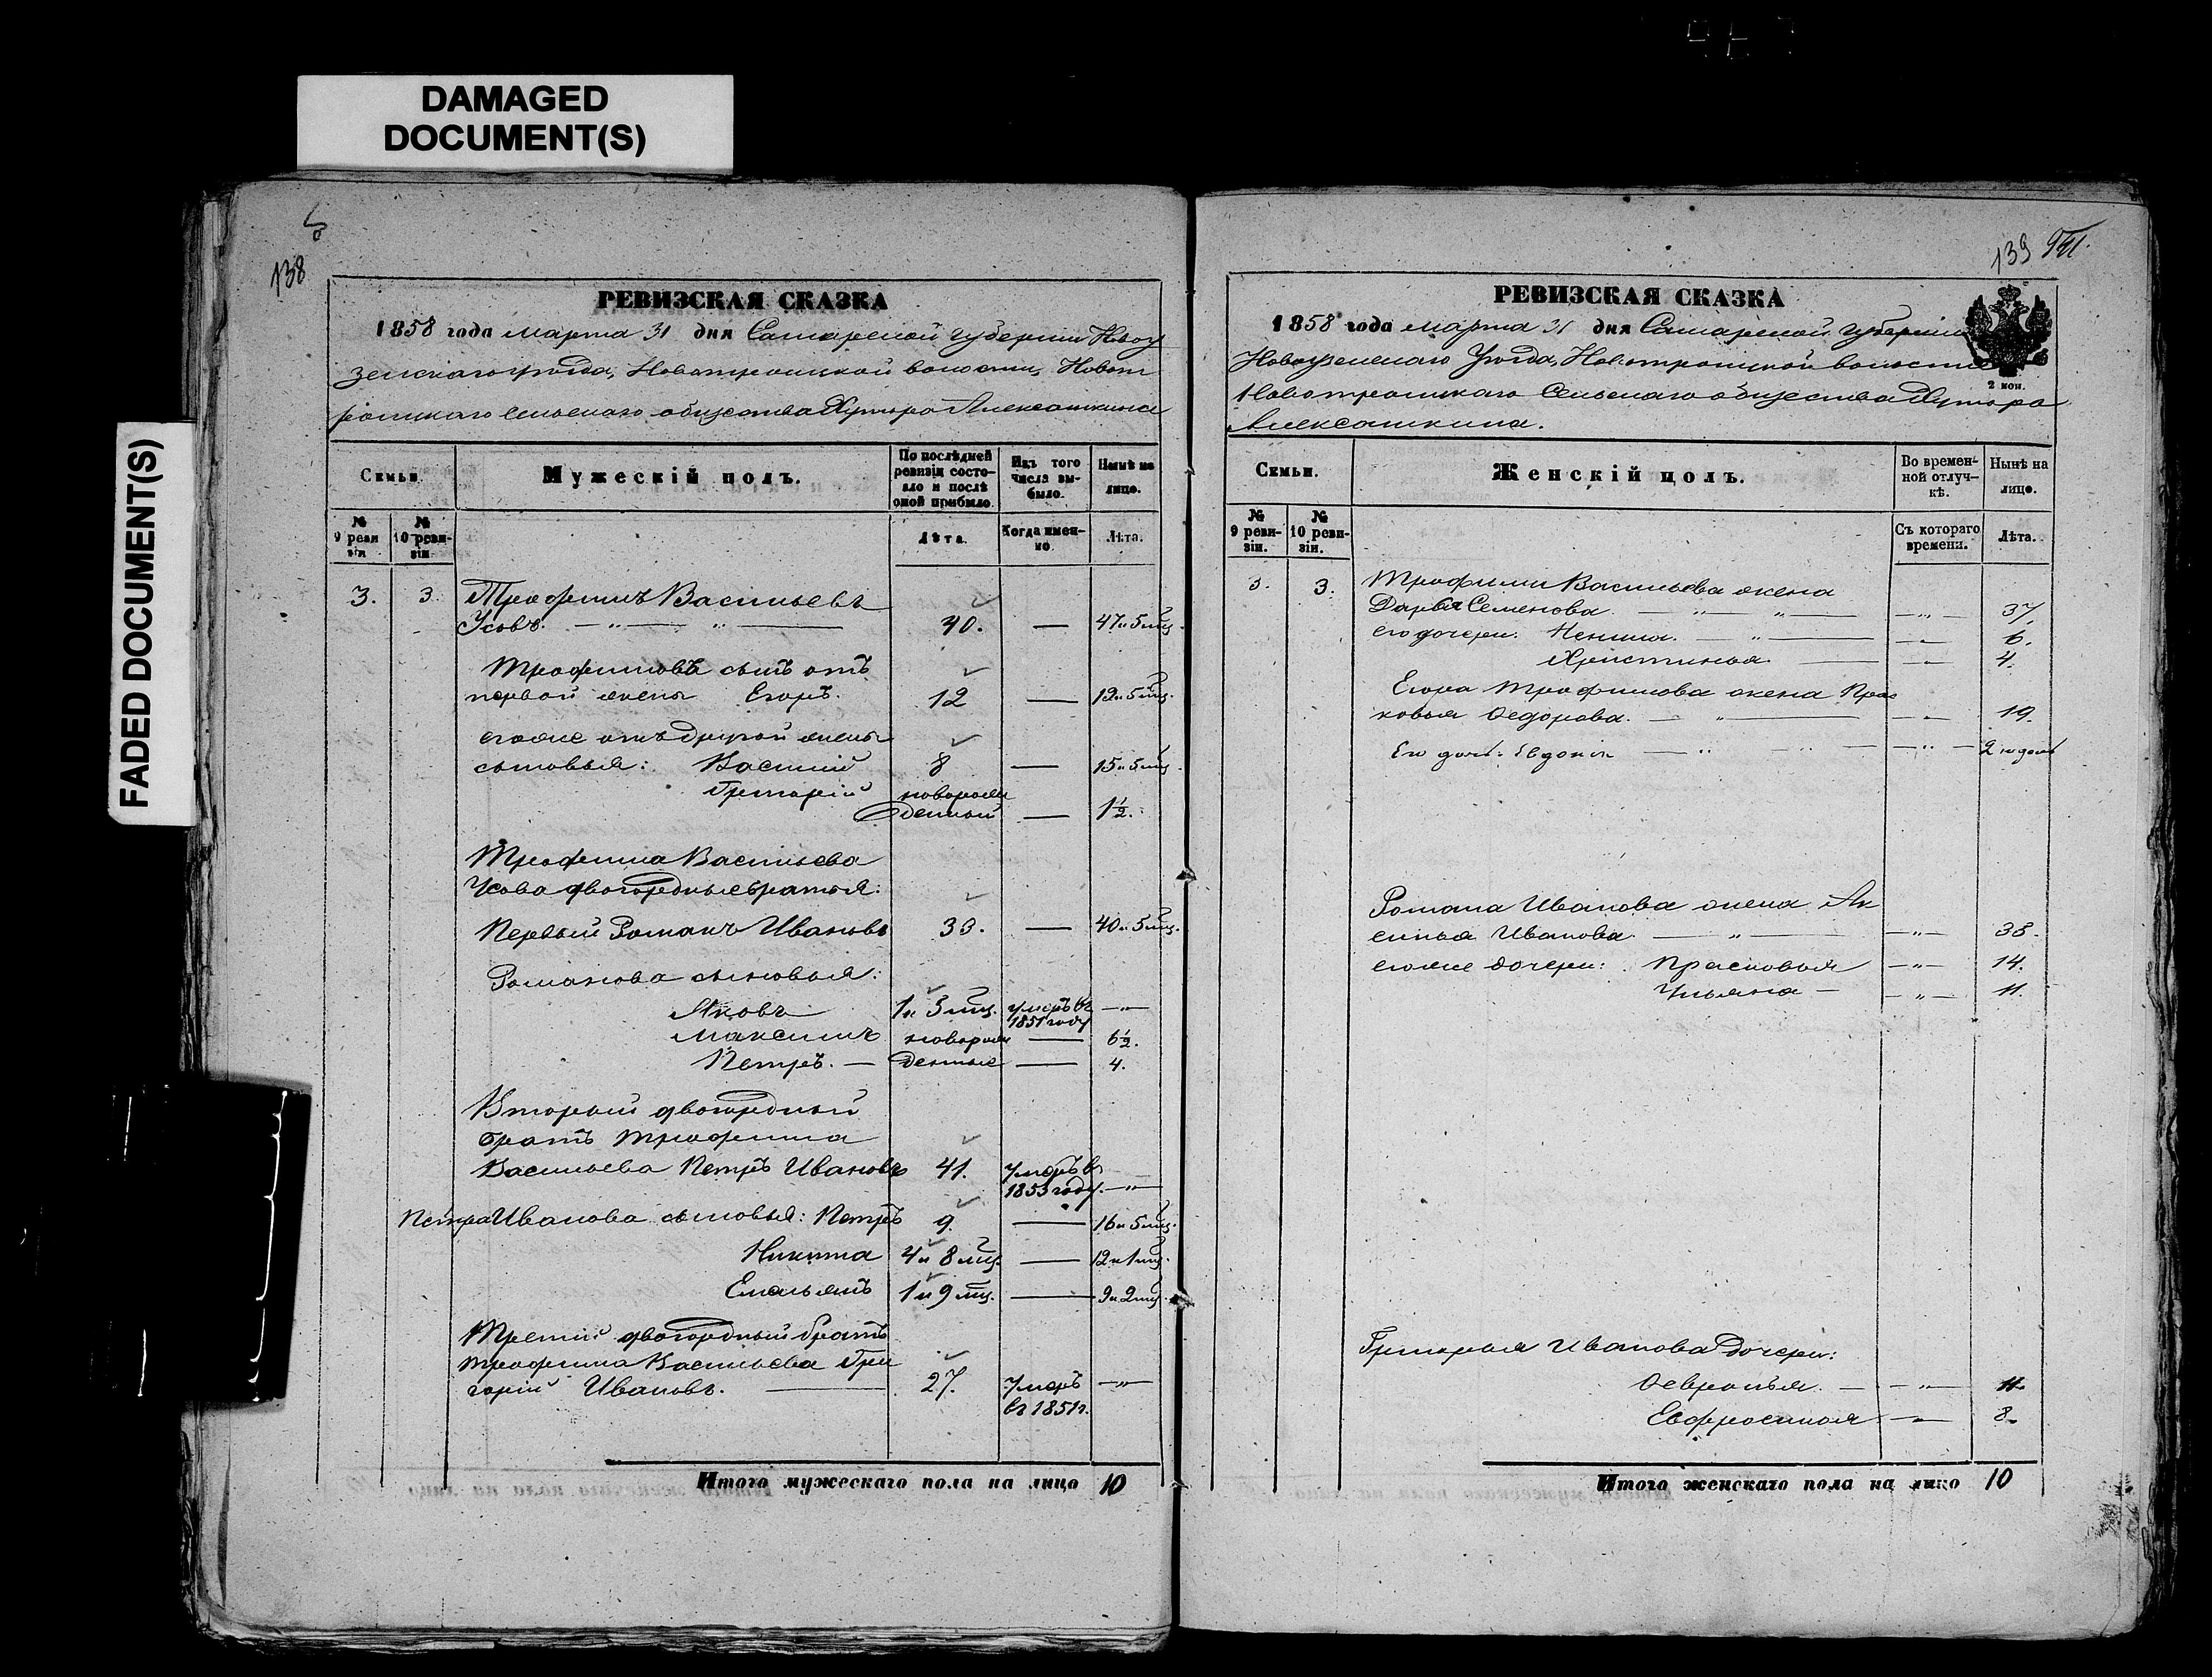 DAMAGED
DOCUMENT(S)
FADED DOCUMENT(S)
138
РЕВИЗСКАЯ СКАЗКА
1858 года марта 31 дня Самарской губернии Новоу
зенскаго уѣзда, Новотроицкой волости, Новот
роицкаго сельскаго общества Хутора Алексашкина
Семьи.
Мужескій полъ.
По послѣдней
ревизіи состо-
яло и послѣ
оной прибыло.
Изъ того
числа вы-
было.
Нынѣ на
лицо.
№
9 реви
зіи
№
10 реви-
зіи
Лѣта.
Когда имен-
но.
Лѣта.
3. 3 Трофимъ Васильевъ
Усовъ. — „ — „ — 40. — 47 и 5 мц.
Трофимовъ сынъ отъ
первой жены Егоръ. 12 — 19 и 5 мц.
егоже отъ другой жены
сыновья: Василій 8 — 15 и 5 мц.
Григорій новорож
денный — 1½.
Трофима Васильева
Усова двоюродные братья:
Первый Романъ Ивановъ 33. — 40 и 5 мц.
Романова сыновья:
Яковъ 1 и 3 мц. умеръ въ 1851 году — „ —
Максимъ новорож — 6½.
Петръ. — денные — 4.
Вторый двоюродный
братъ Трофима
Васильева Петръ Ивановъ 41. умеръ в 1853 году. — „ —
Петра Иванова сыновья: Петръ 9. — 16 и 5 мц.
Никита 4 и 8 мц. — 12 и 1 мц.
Емельянъ 1 и 9 мц. — 9 и 2 мц.
Третій двоюродный братъ
Трофима Васильева Гри
горій Ивановъ. — 27. умеръ въ 1851 г. — „ —
Итого мужескаго пола на лицо 10
139
РЕВИЗСКАЯ СКАЗКА
1858 года марта 31 дня Самарской губерніи
Новоузенскаго Уѣзда, Новотроицкой волости
Новотроицкаго Сельскаго общества Хутора
Алексашкина.
2 коп.
Семьи.
Женскій полъ.
Во времен-
ной отлуч-
кѣ.
Нынѣ на
лицо.
№
9 реви-
зіи.
№
10 реви-
зіи.
Съ котораго
времени.
Лѣта.
3. 3. Трофима Васильева жена
Дарья Семенова — „ — „ — — „ — 37.
его дочери: Ксенія. — „ — — „ — 6.
Христинья — — „ — 4.
Егора Трофимова жена Прас
ковья Федорова. — „ — — „ — 19.
Его дочь: Евдокія — „ — „ — — „ — 2 недѣл
Романа Иванова жена Ак
синья Иванова — „ — — „ — 38.
егоже дочери: Прасковья — „ — 14.
Ульяна — — „ — 11.
Григорья Иванова дочери:
Февронья. — — „ — 11.
Евфросинья — „ — 8.
Итого женскаго пола на лицо 10